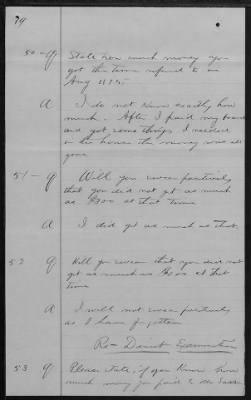 79
50 - Q State how much money you
got the time refered to in
Aug 4
A I do not know exactly how
much. After I paid my board
and got some things I needed
in the house the money was all
gone
51 - Q Will you swear positively
that you did not get as much
as $300 at that time
A I did get as much as that
52 Q Will you swear that you did not
get as much as at that
time
A I will not swear positively
as I have forgotten
Re - Direct Examination
53 Q Please State, if you know how
much money you paid to Mr